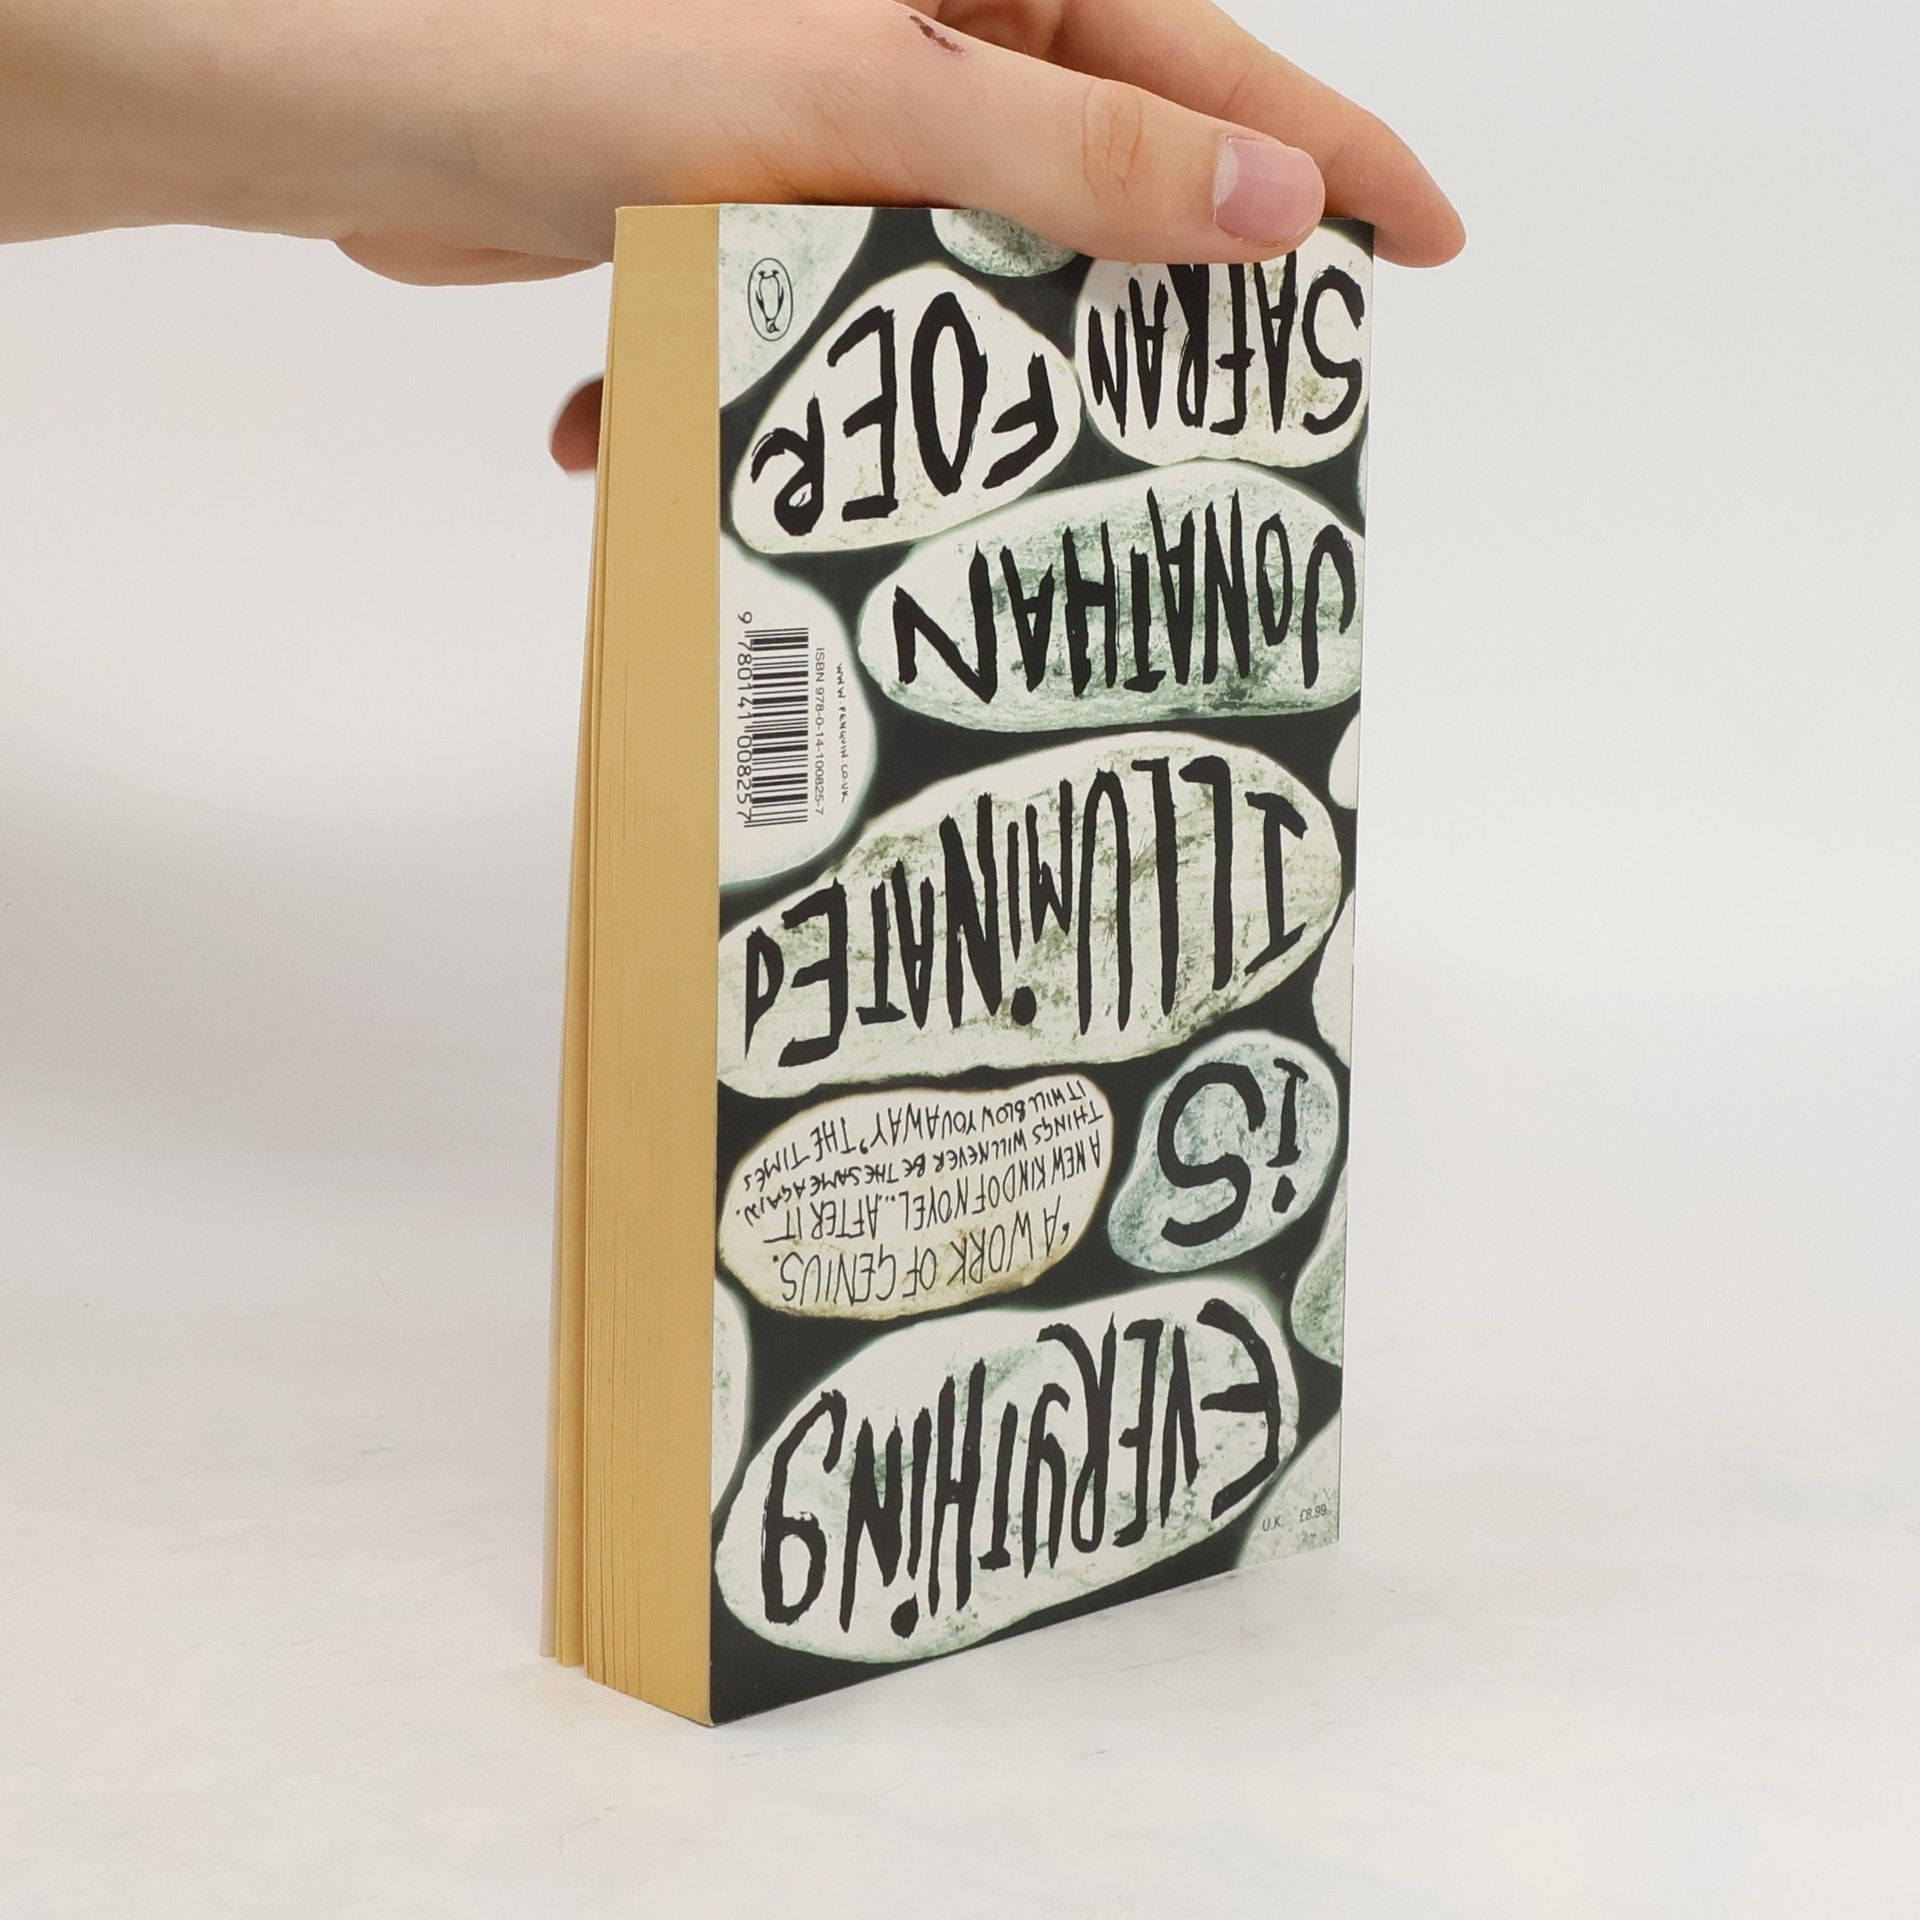 EVERYTHING
iS
'A WORK OF GENIUS.
A NEW KIND OF NOVEL... AFTER IT
THINGS WILL NEVER BE THE SAME AGAIN.
IT WILL BLOW YOU AWAY' THE TIMES
ILLUMiNATED
JONATHAN
SAFRAN
FOER
U.K. £8.99
WWW.PENGUIN.CO.UK
ISBN 978-0-14-100825-7
9 780141 008257